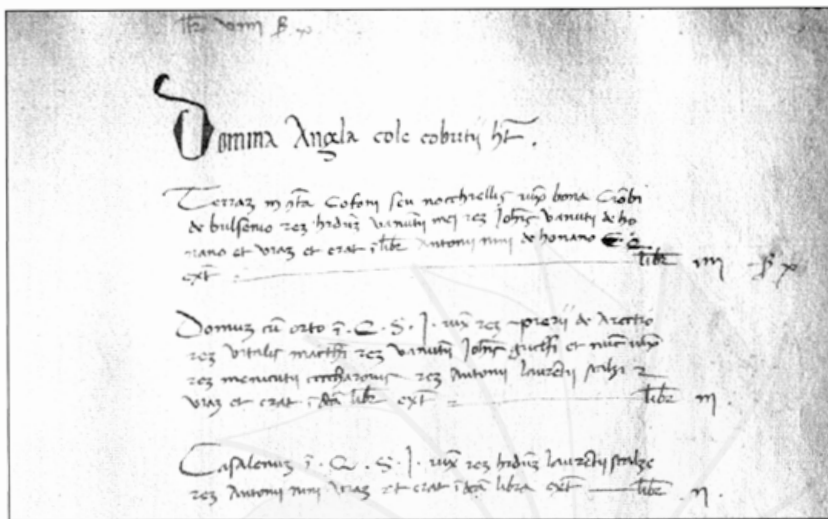 libr viiii ß x
Domina Angela cole cobutii ht.
Terraz in ꝯta Cofoni seu nocchrellis iux bona
de bulsenio rez hrduz vanutii mei rez Johis vanuti de ho
nano et viaz et erat i libr Antonii nini de honano
ext libr iiii ß x
Domuz cu orto i. C. S. J. iux rez de Arectio
rez vitalis matthi rez vanutii Johis et nuc
rez menicutii rez Antonii lauretii
viaz et erat i dca libr ext libr iii.
Casalenuz i. C. S. J. iux rez hrduz lauretii
rez Antonii nini viaz et erat i dca libra ext libr ii.